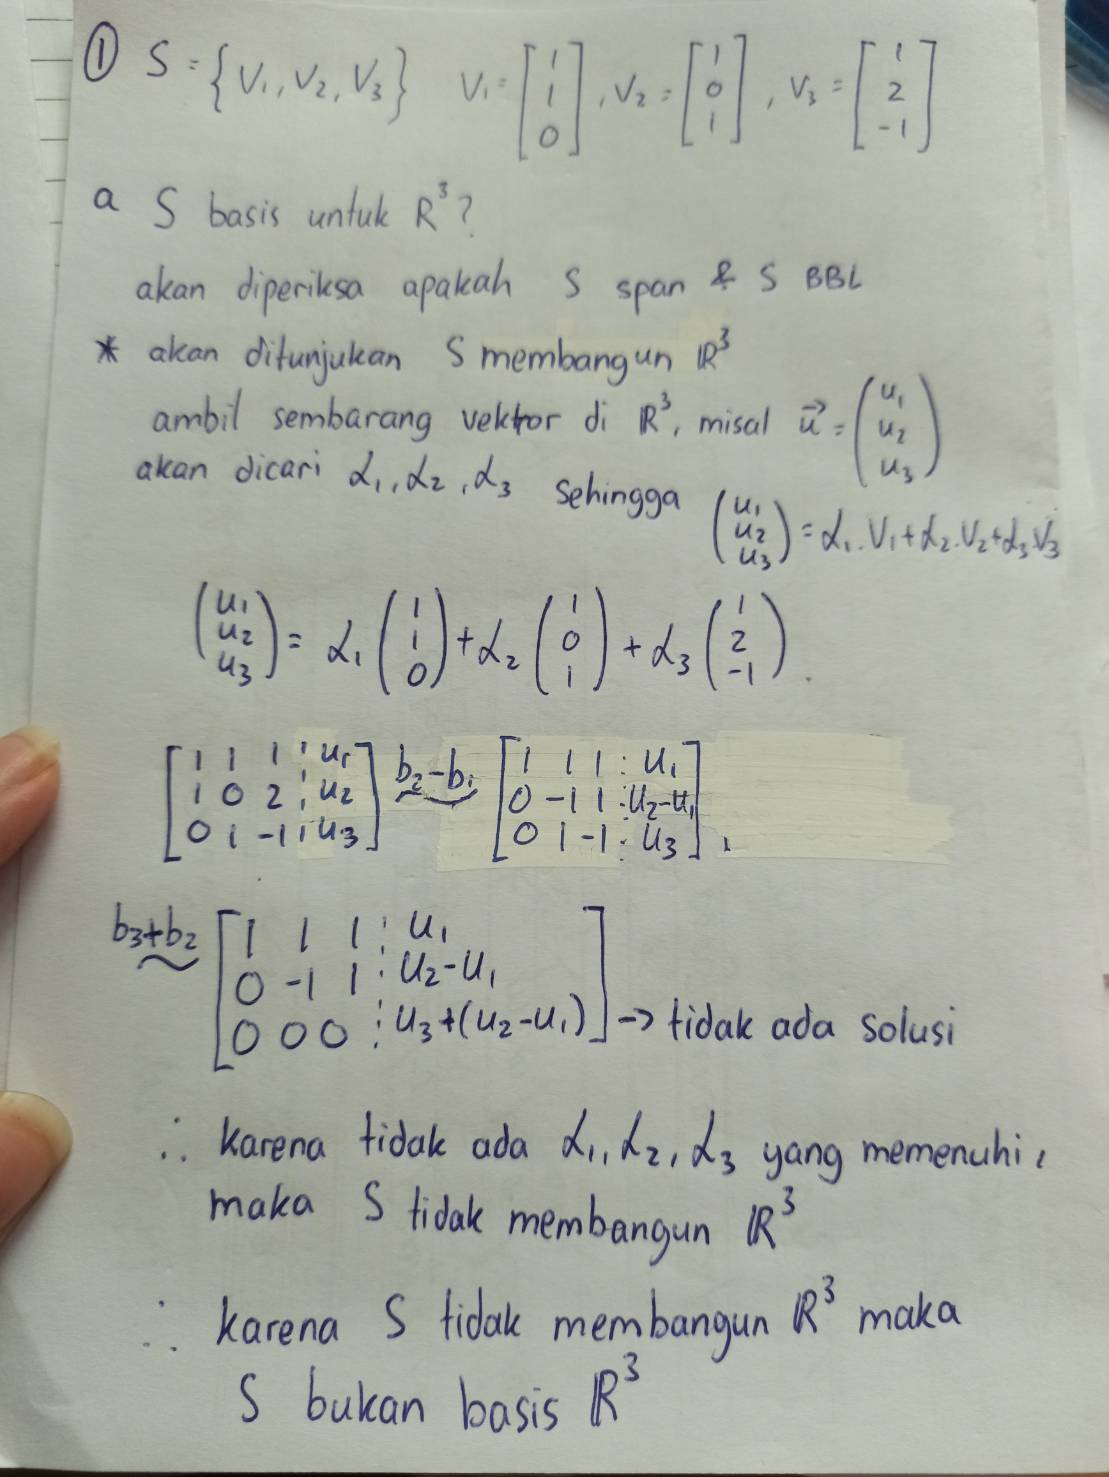 ① S = {V₁, V₂, V₃} V₁ = [1 1 0], V₂ = [1 0 1], V₃ = [1 2 -1]
a S basis untuk R³?
akan diperiksa apakah S span & S BBL
* akan ditunjukan S membangun ℝ³
ambil sembarang vektor di ℝ³, misal u⃗ = (u₁ u₂ u₃)
akan dicari α₁, α₂, α₃ sehingga (u₁ u₂ u₃) = α₁.V₁ + α₂.V₂ + α₃.V₃
(u₁ u₂ u₃) = α₁ (1 1 0) + α₂ (1 0 1) + α₃ (1 2 -1).
[1 1 1 ⋮ u₁] b₂-b₁ [1 1 1 ⋮ u₁]
[1 0 2 ⋮ u₂] ~ [0 -1 1 ⋮ u₂-u₁]
[0 1 -1 ⋮ u₃] [0 1 -1 ⋮ u₃],
b₃+b₂ [1 1 1 ⋮ u₁]
~ [0 -1 1 ⋮ u₂-u₁]
[0 0 0 ⋮ u₃+(u₂-u₁)] → tidak ada solusi
∴ karena tidak ada α₁, α₂, α₃ yang memenuhi,
maka S tidak membangun ℝ³
∴ karena S tidak membangun ℝ³ maka
S bukan basis ℝ³